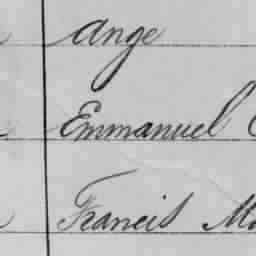 Ange
Emmanuel
Francis